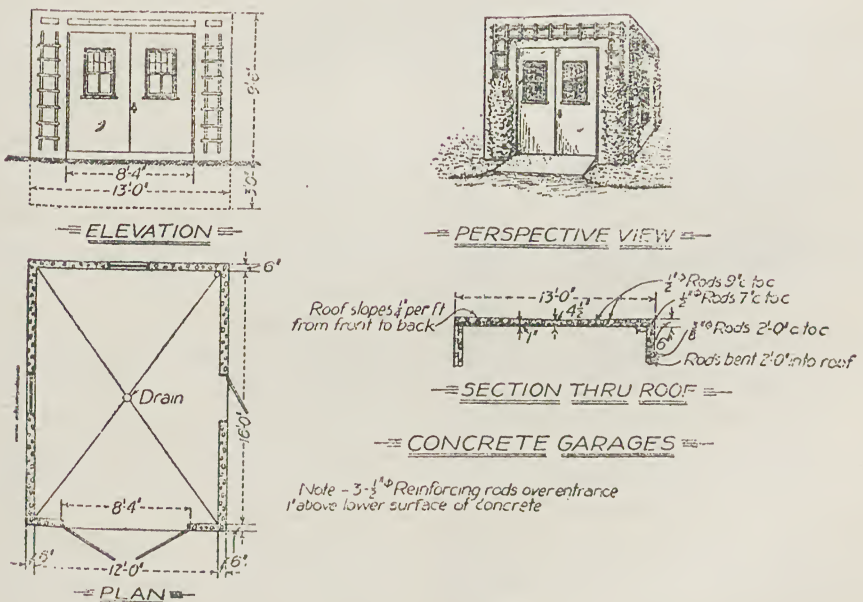 9'-6"
3'-0"
8'-4"
13'-0"
ELEVATION
PERSPECTIVE VIEW
6"
Drain
16'-0"
8'-4"
6"
12'-0"
6"
PLAN
Roof slopes ¼" per ft
from front to back
13'-0"
4½"
1"
½"ᶲ Rods 9" c to c
½"ᶲ Rods 7" c to c
6"
⅜"ᶲ Rods 2'-0" c to c
Rods bent 2'-0" into roof
SECTION THRU ROOF
CONCRETE GARAGES
Note - 3-½"ᶲ Reinforcing rods over entrance
1" above lower surface of concrete